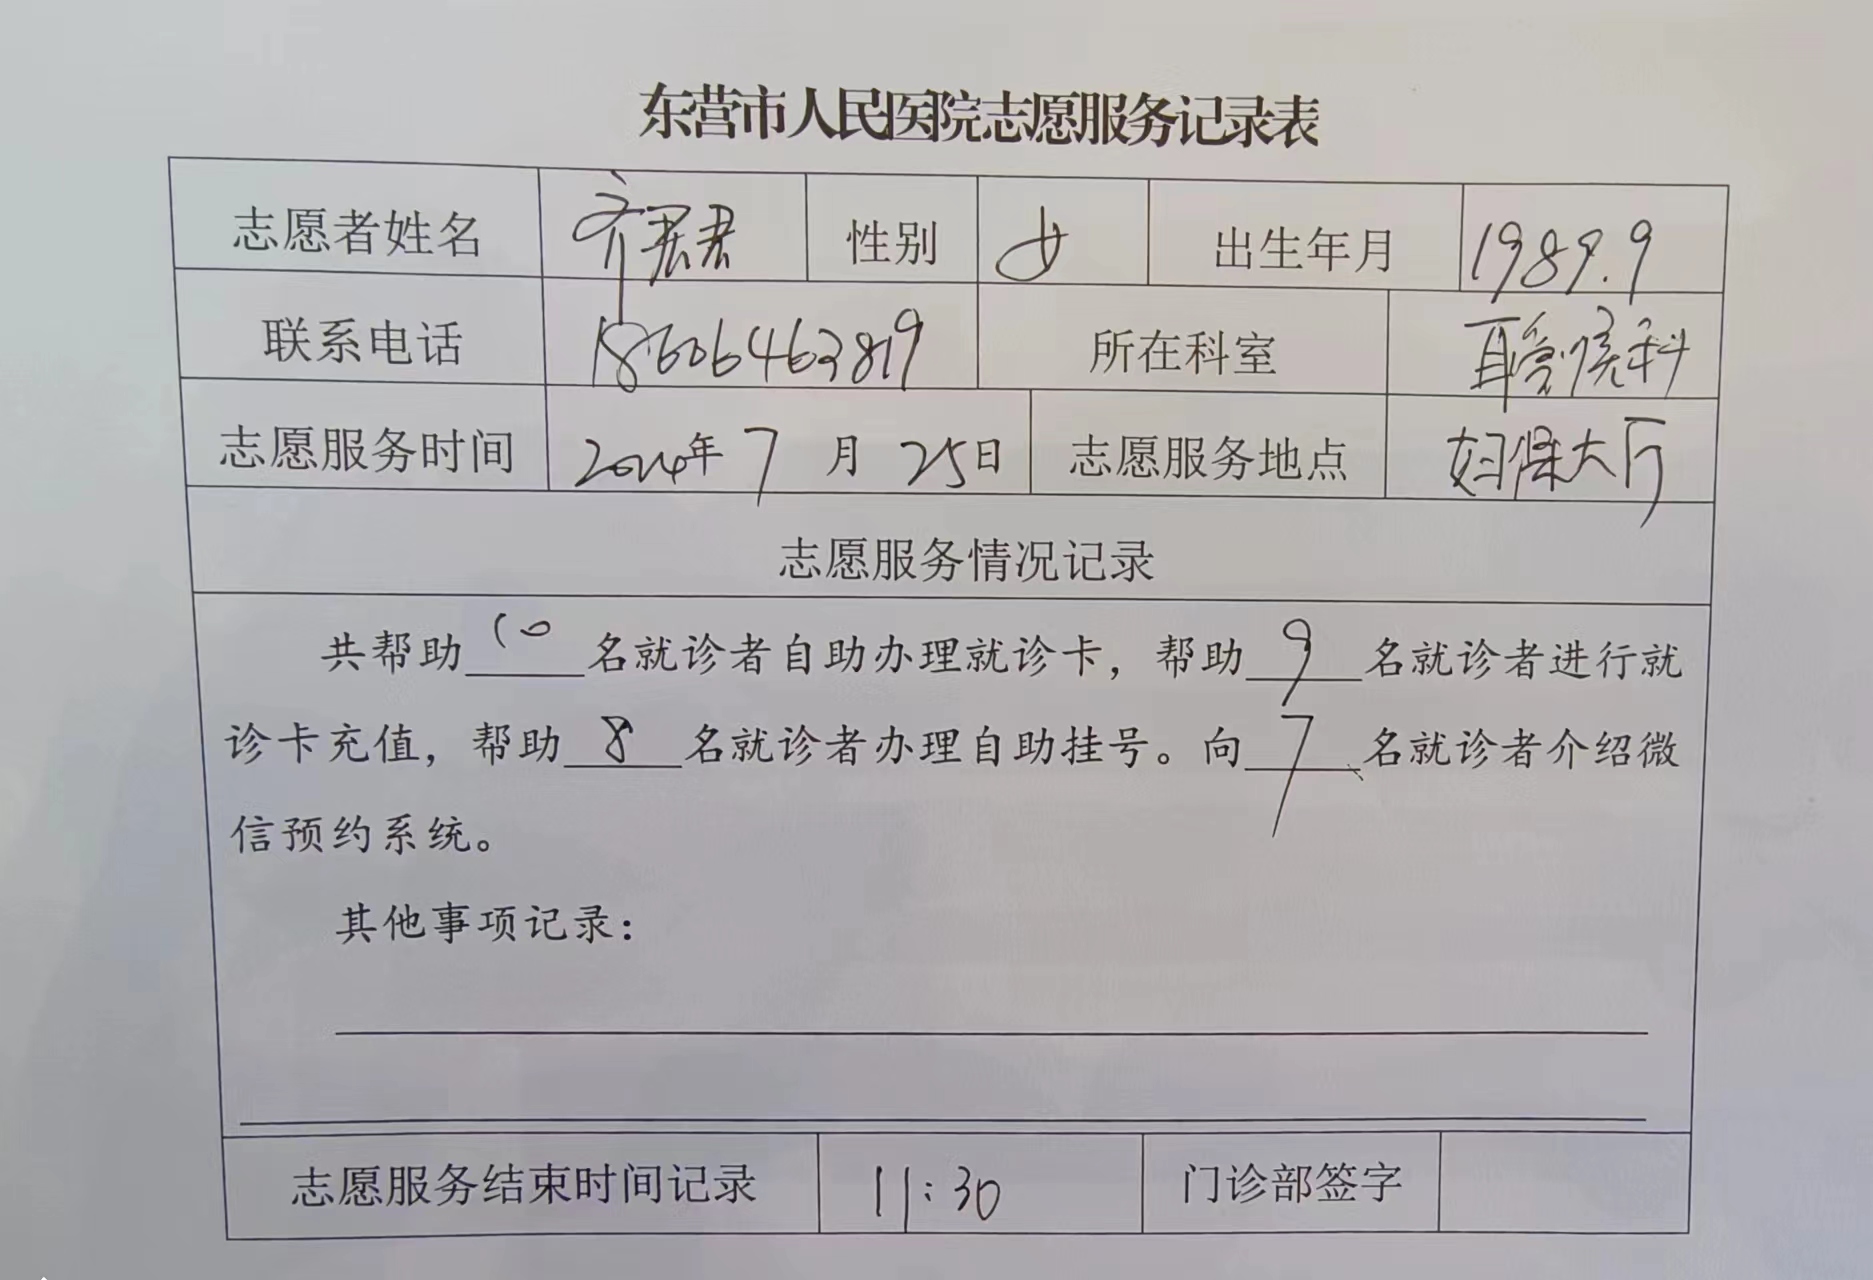 东营市人民医院志愿服务记录表
志愿者姓名 齐君 性别 女 出生年月 1989.9
联系电话 18606463819 所在科室 耳鼻喉科
志愿服务时间 2024年 7 月 25日 志愿服务地点 妇保大厅
志愿服务情况记录
共帮助 10 名就诊者自助办理就诊卡，帮助 9 名就诊者进行就
诊卡充值，帮助 8 名就诊者办理自助挂号。向 7 名就诊者介绍微
信预约系统。
其他事项记录：
志愿服务结束时间记录 11:30 门诊部签字